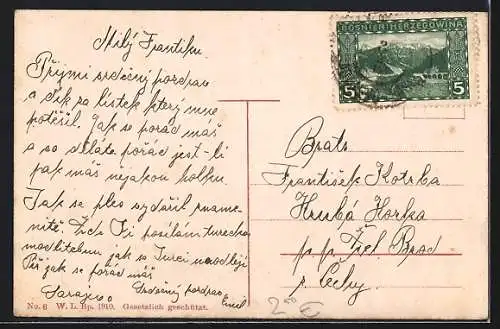 Milý Františku
Přijmi srdečný pozdrav
a dík za lístek který mne
potěšil. Jak se pořád máš
a co děláte pořád jest-li
pak máš nějakou holku.
Jak se ples vydařil zname-
nitě. Zde Ti posílám turecku
modlitebnu jak se Turci modlejí
Piš jak se pořád máš
Srdečný pozdrav
Sarajevo Emil
No. 6 W. L. Bp. 1910. Gesetzlich geschützt.
BOSNIEN-HERZEGOWINA
5 5
Bratr
František Kotrba
Hrubá Horka
p. p. Žel. Brod
Čechy